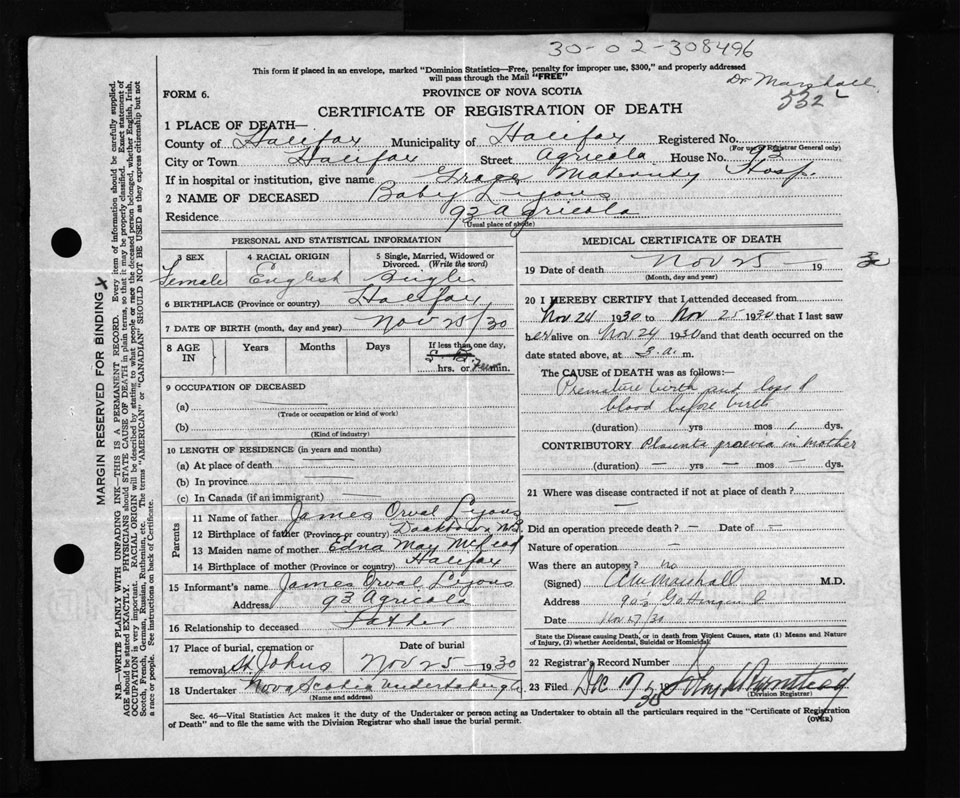 30-02-308496
This form if placed in an envelope, marked "Dominion Statistics—Free, penalty for improper use, $300," and properly addressed
will pass through the Mail "FREE"
Dr Marshall
532
FORM 6.
PROVINCE OF NOVA SCOTIA
CERTIFICATE OF REGISTRATION OF DEATH
1 PLACE OF DEATH—
County of Halifax Municipality of Halifax Registered No.
(For use of Registrar General only)
City or Town Halifax Street Agricola House No. 93
If in hospital or institution, give name Grace Maternity Hosp.
2 NAME OF DECEASED Baby Lyons
Residence 93 Agricola
(Usual place of abode)
PERSONAL AND STATISTICAL INFORMATION
3 SEX 4 RACIAL ORIGIN 5 Single, Married, Widowed or
Divorced. (Write the word)
Female English Single
6 BIRTHPLACE (Province or country) Halifax
7 DATE OF BIRTH (month, day and year) Nov 25/30
8 AGE IN Years Months Days If less than one day,
hrs. or min.
9 OCCUPATION OF DECEASED
(a)
(Trade or occupation or kind of work)
(b)
(Kind of industry)
10 LENGTH OF RESIDENCE (in years and months)
(a) At place of death
(b) In province
(c) In Canada (if an immigrant)
Parents
11 Name of father James Orval Lyons
12 Birthplace of father (Province or country) Doaktown N.B.
13 Maiden name of mother Edna May McLeod
14 Birthplace of mother (Province or country) Halifax
15 Informant's name James Orval Lyons
Address 93 Agricola
16 Relationship to deceased Father
17 Place of burial, cremation or removal Date of burial
St. Johns Nov 25 1930
18 Undertaker Nova Scotia Undertaking Co
(Name and address)
MEDICAL CERTIFICATE OF DEATH
19 Date of death Nov 25 — 19 30
(Month, day and year)
20 I HEREBY CERTIFY that I attended deceased from
Nov 24 1930 to Nov 25 1930 that I last saw
her alive on Nov 24 1930 and that death occurred on the
date stated above, at 3.a. m.
The CAUSE of DEATH was as follows:—
Premature birth and loss of
blood before birth
(duration) yrs mos 1 dys.
CONTRIBUTORY Placenta praevia in mother
(duration) — yrs — mos — dys.
21 Where was disease contracted if not at place of death?
Did an operation precede death? — Date of —
Nature of operation —
Was there an autopsy? no
(Signed) Marshall M.D.
Address Gottingen St
Date Nov 27/30
State the Disease causing Death, or in death from Violent Causes, state (1) Means and Nature
of Injury, (2) whether Accidental, Suicidal or Homicidal.
22 Registrar's Record Number
23 Filed Dec 17 1930
(Division Registrar)
Sec. 46—Vital Statistics Act makes it the duty of the Undertaker or person acting as Undertaker to obtain all the particulars required in the "Certificate of Registration
of Death" and to file the same with the Division Registrar who shall issue the burial permit.
(OVER)
MARGIN RESERVED FOR BINDING
N.B.—WRITE PLAINLY WITH UNFADING INK—THIS IS A PERMANENT RECORD. Every item of information should be carefully supplied.
AGE should be stated EXACTLY. PHYSICIANS should STATE CAUSE OF DEATH in plain terms, so that it may be properly classified. Exact statement of
OCCUPATION is very important. RACIAL ORIGIN will be described by stating to what people or race the deceased person belonged, whether English, Irish,
Scotch, French, German, Russian, Ruthenian, etc. The terms "AMERICAN" or "CANADIAN" SHOULD NOT BE USED as they express citizenship but not
a race or people. See instructions on back of Certificate.